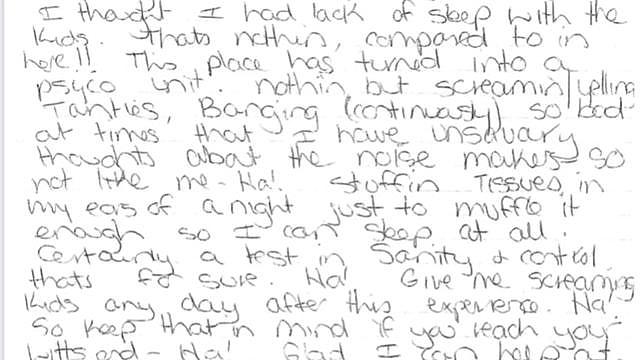 I thought I had lack of sleep with the
kids. Thats nothin, compared to in
here!! This place has turned into a
psyco unit. nothin but screamin/yelling
Tanties, Banging (continuously) so bad
at times that I have unsavary
thoughts about the noise makers so
not like me - Ha! Stuffin Tissues in
my ears of a night just to muffle it
enough so I can sleep at all.
Certainly a test in Sanity & control
thats for sure. Ha! Give me screaming
kids any day after this experience. Ha!
So keep that in mind if you reach your
witts end - Ha! Glad I can help at